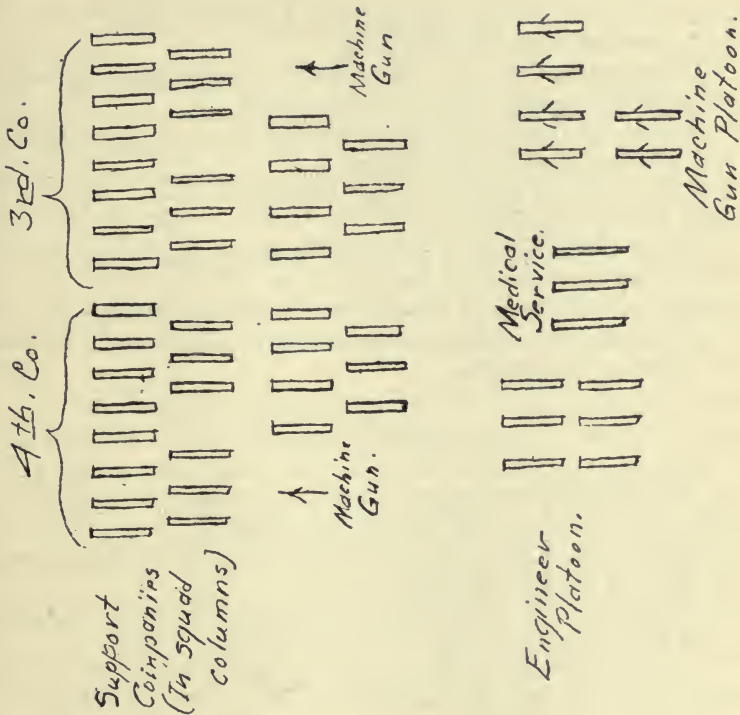 4th. Co.
3rd. Co.
Support
Coinpanies
(In squad
columns)
Machine
Gun.
Machine
Gun
Engineer
Platoon.
Medical
Service.
Machine
Gun Platoon.